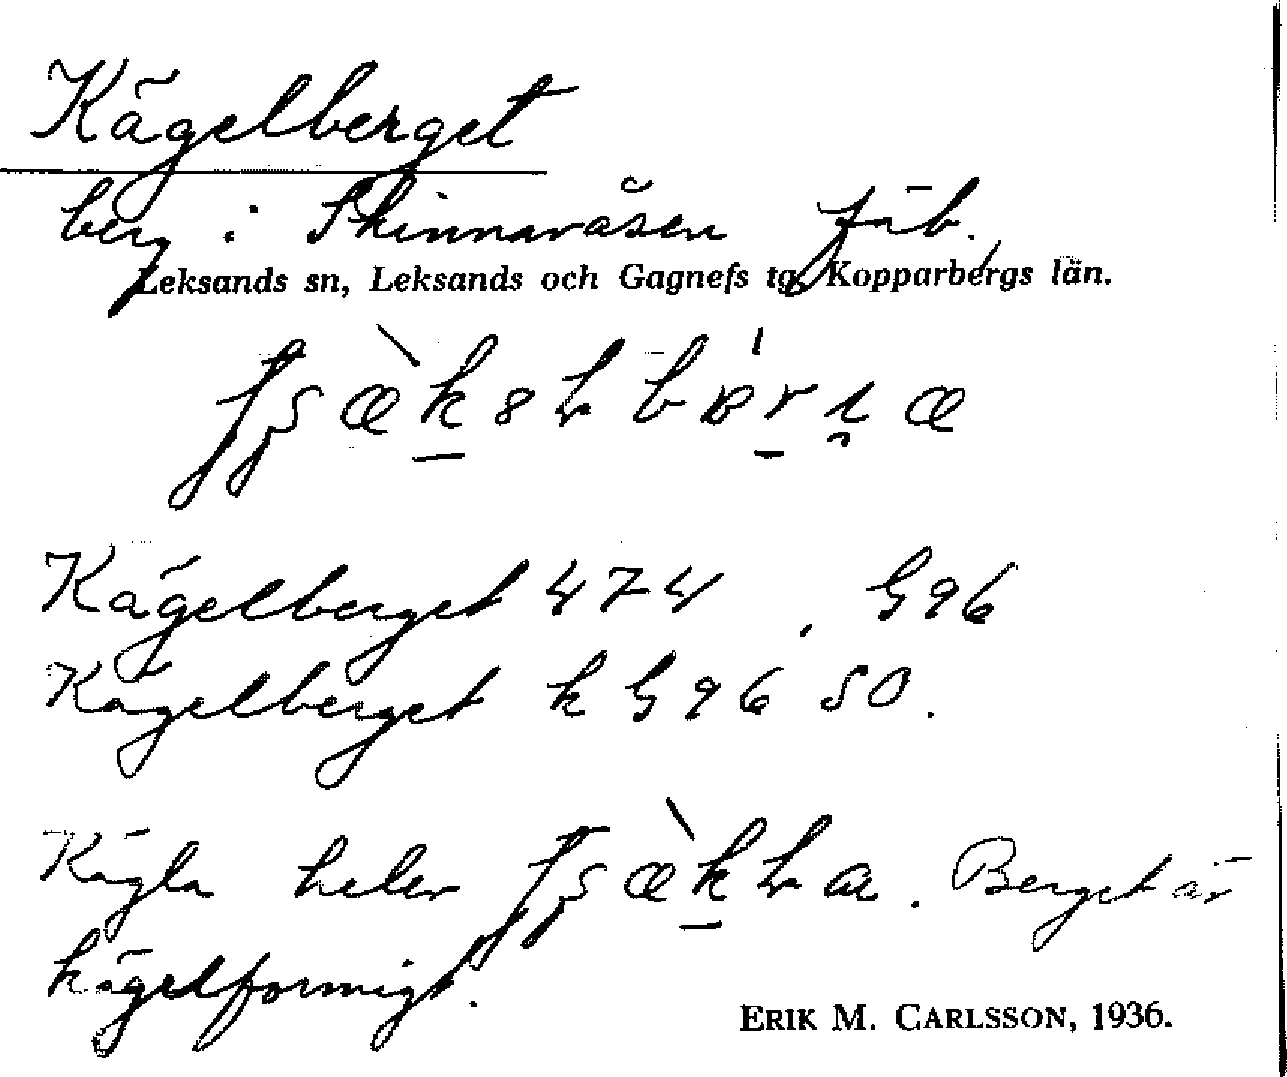 Kägelberget
berg i Skinnaråsen fäb.
Leksands sn, Leksands och Gagnefs tg, Kopparbergs län.
Kägelberget 474, G96
Kägelberget k G96 SO.
Kägla heter. Berget är
kägelformigt.
ERIK M. CARLSSON, 1936.